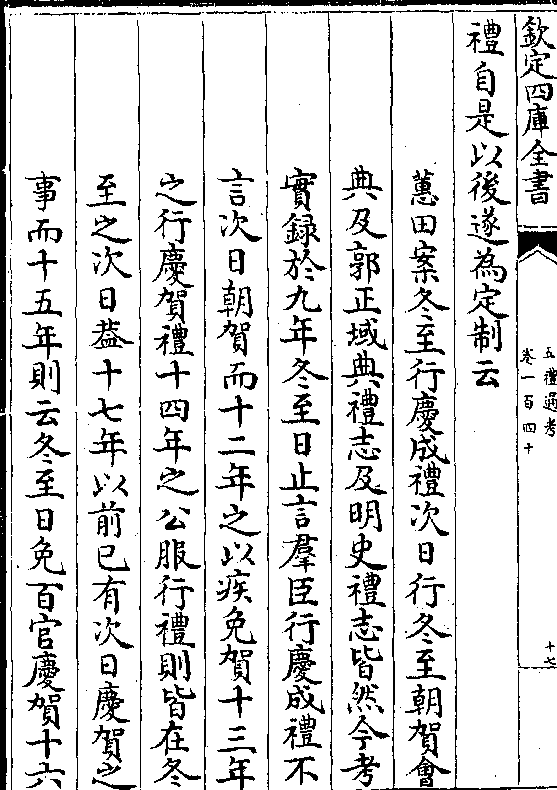 欽定四庫全書
五禮通考
卷一百四十
十七
禮自是以後遂為定制云
蕙田案冬至行慶成禮次日行冬至朝賀會
典及郭正域典禮志及明史禮志皆然今考
實錄於九年冬至日止言羣臣行慶成禮不
言次日朝賀而十二年之以疾免賀十三年
之行慶賀禮十四年之公服行禮則皆在冬
至之次日葢十七年以前已有次日慶賀之
事而十五年則云冬至日免百官慶賀十六